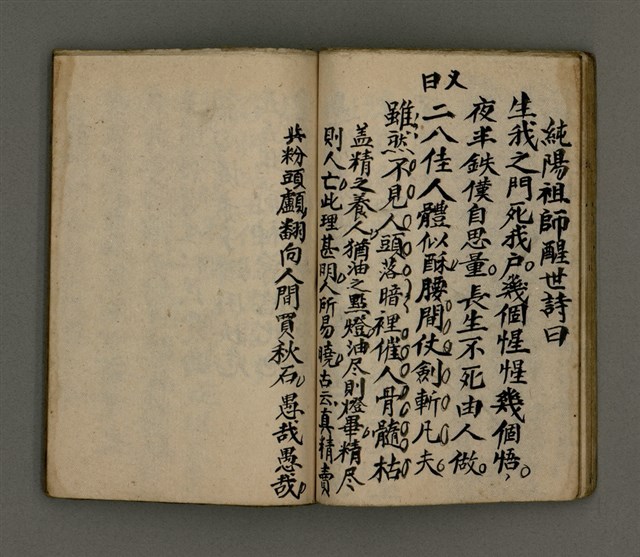 純陽祖師醒世詩曰
生我之門死我户。幾個惺惺幾個悟，
夜半鉄僕自思量。長生不死由人做。
又曰
二八佳人體似酥。腰間仗劍斬凡夫。
雖然不見人頭落。暗裡催人骨髓枯
盖精之養人猶油之點燈。油尽則燈畢精尽
則人亡。此理甚明。人所易曉。古云。真精賣
與粉頭顱。翻向人間買秋石。愚哉愚哉